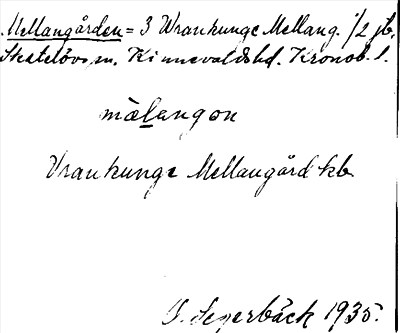 Mellangården = 3 Vrankunge Mellang. 1/2 jb,
Skatelövs sn. Kinnevalds hd. Kronob. l.
mälangon
Vrankunge Mellangård kb
J. Segerbäck 1935.